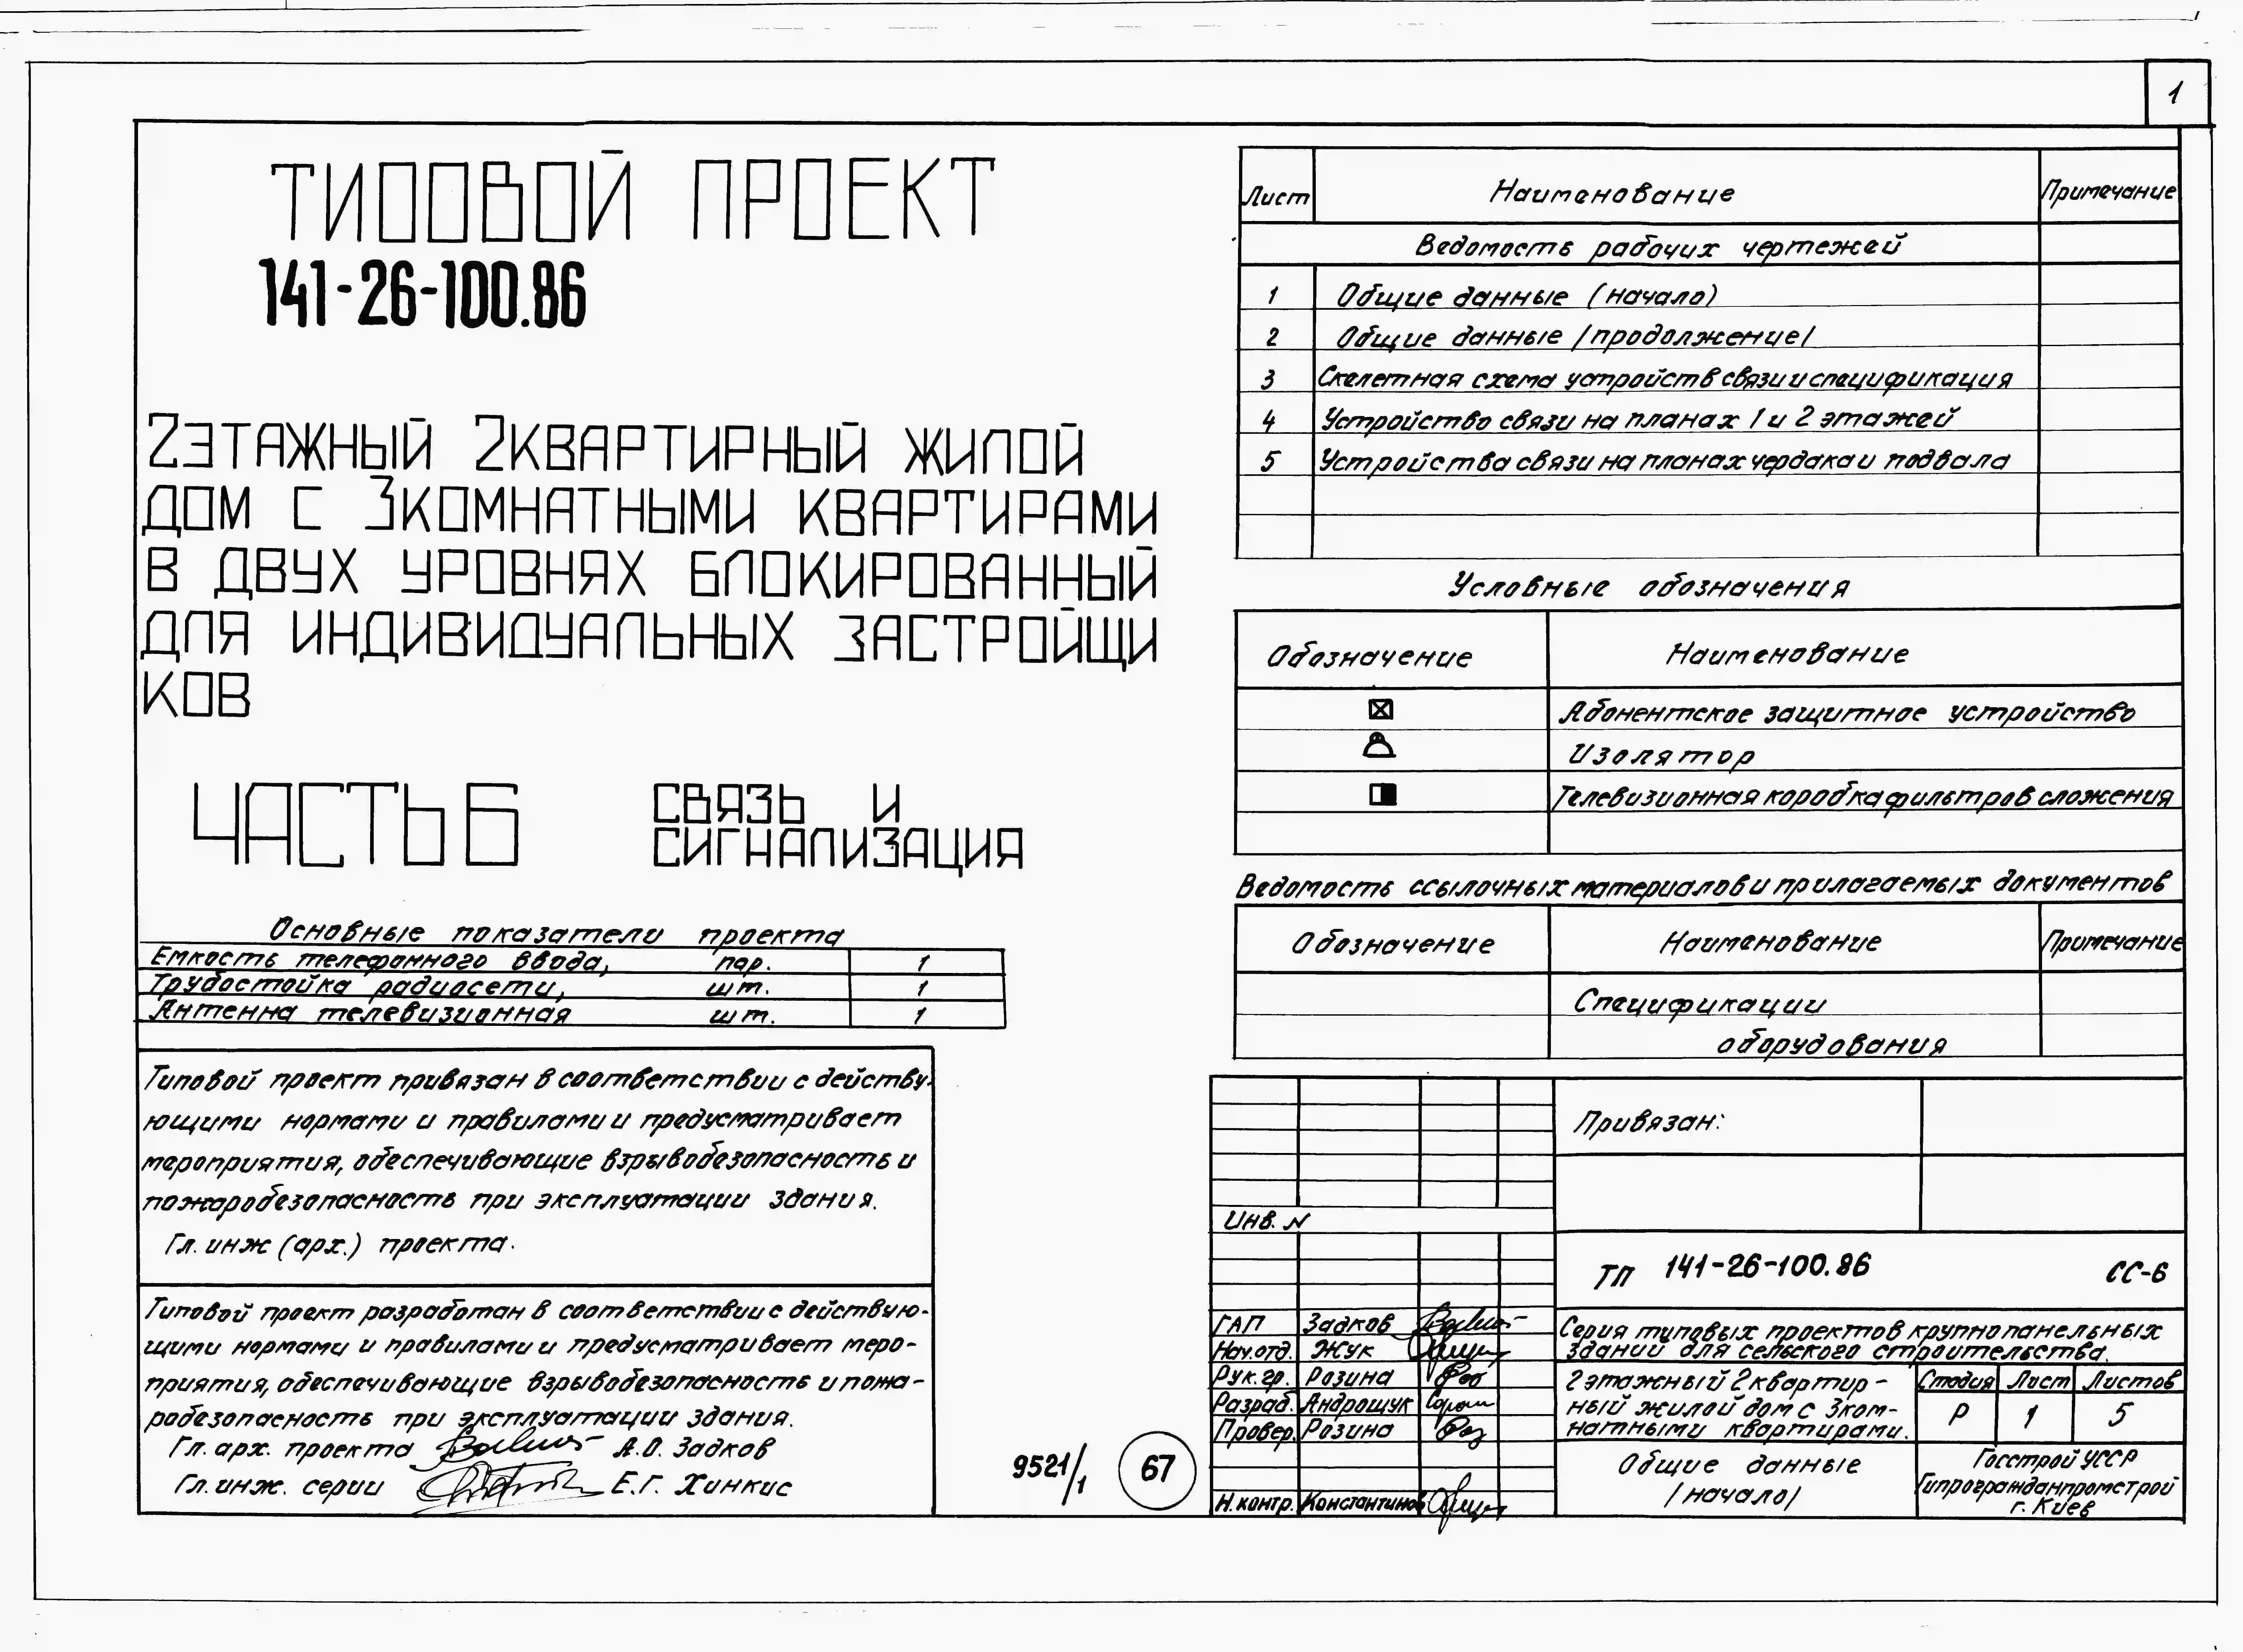 1
ТИПОВОЙ ПРОЕКТ
141-26-100.86
2ЭТАЖНЫЙ 2КВАРТИРНЫЙ ЖИЛОЙ
ДОМ С 3КОМНАТНЫМИ КВАРТИРАМИ
В ДВУХ УРОВНЯХ БЛОКИРОВАННЫЙ
ДЛЯ ИНДИВИДУАЛЬНЫХ ЗАСТРОЙЩИ
КОВ
ЧАСТЬ 6 СВЯЗЬ И
СИГНАЛИЗАЦИЯ
Основные показатели проекта
Емкость телефонного ввода, пар. 1
Трубостойка радиосети, шт. 1
Антенна телевизионная шт. 1
Типовой проект привязан в соответствии с действу-
ющими нормами и правилами и предусматривает
мероприятия, обеспечивающие взрывобезопасность и
пожаробезопасность при эксплуатации здания.
Гл. инж (арх.) проекта.
Типовой проект разработан в соответствии с действую-
щими нормами и правилами и предусматривает меро-
приятия, обеспечивающие взрывобезопасность и пожа-
робезопасность при эксплуатации здания.
Гл. арх. проекта А.О. Задков
Гл. инж. серии Е.Г. Хинкис
9521/1 67
Лист Наименование Примечание
Ведомость рабочих чертежей
1 Общие данные (начало)
2 Общие данные /продолжение/
3 Скелетная схема устройств связи и спецификация
4 Устройство связи на планах 1 и 2 этажей
5 Устройства связи на планах чердака и подвала
Условные обозначения
Обозначение Наименование
Абонентское защитное устройство
Изолятор
Телевизионная коробка фильтров сложения
Ведомость ссылочных материалов и прилагаемых документов
Обозначение Наименование Примечание
Спецификации
оборудования
Привязан:
Инв. N
ТП 141-26-100.86 СС-6
ГАП Задков
Нач.отд. Жук
Рук.гр. Розина
Разраб. Андрощук
Провер. Розина
Н.контр. Константинов
Серия типовых проектов крупнопанельных
зданий для сельского строительства.
2этажный 2квартир-
ный жилой дом с 3ком-
натными квартирами.
Стадия Лист Листов
Р 1 5
Общие данные
/начало/
Госстрой УССР
Гипрогражданпромстрой
г. Киев